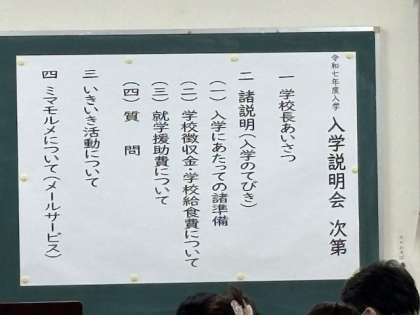 令和七年度入学
入学説明会 次第
一 学校長あいさつ
二 諸説明(入学のてびき)
(一) 入学にあたっての諸準備
(二) 学校徴収金・学校給食費について
(三) 就学援助費について
(四) 質 問
三 いきいき活動について
四 ミマモルメについて(メールサービス)